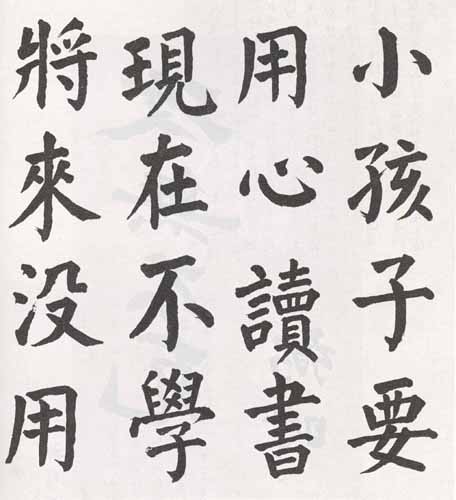 小孩子要
用心讀書
現在不學
將來没用